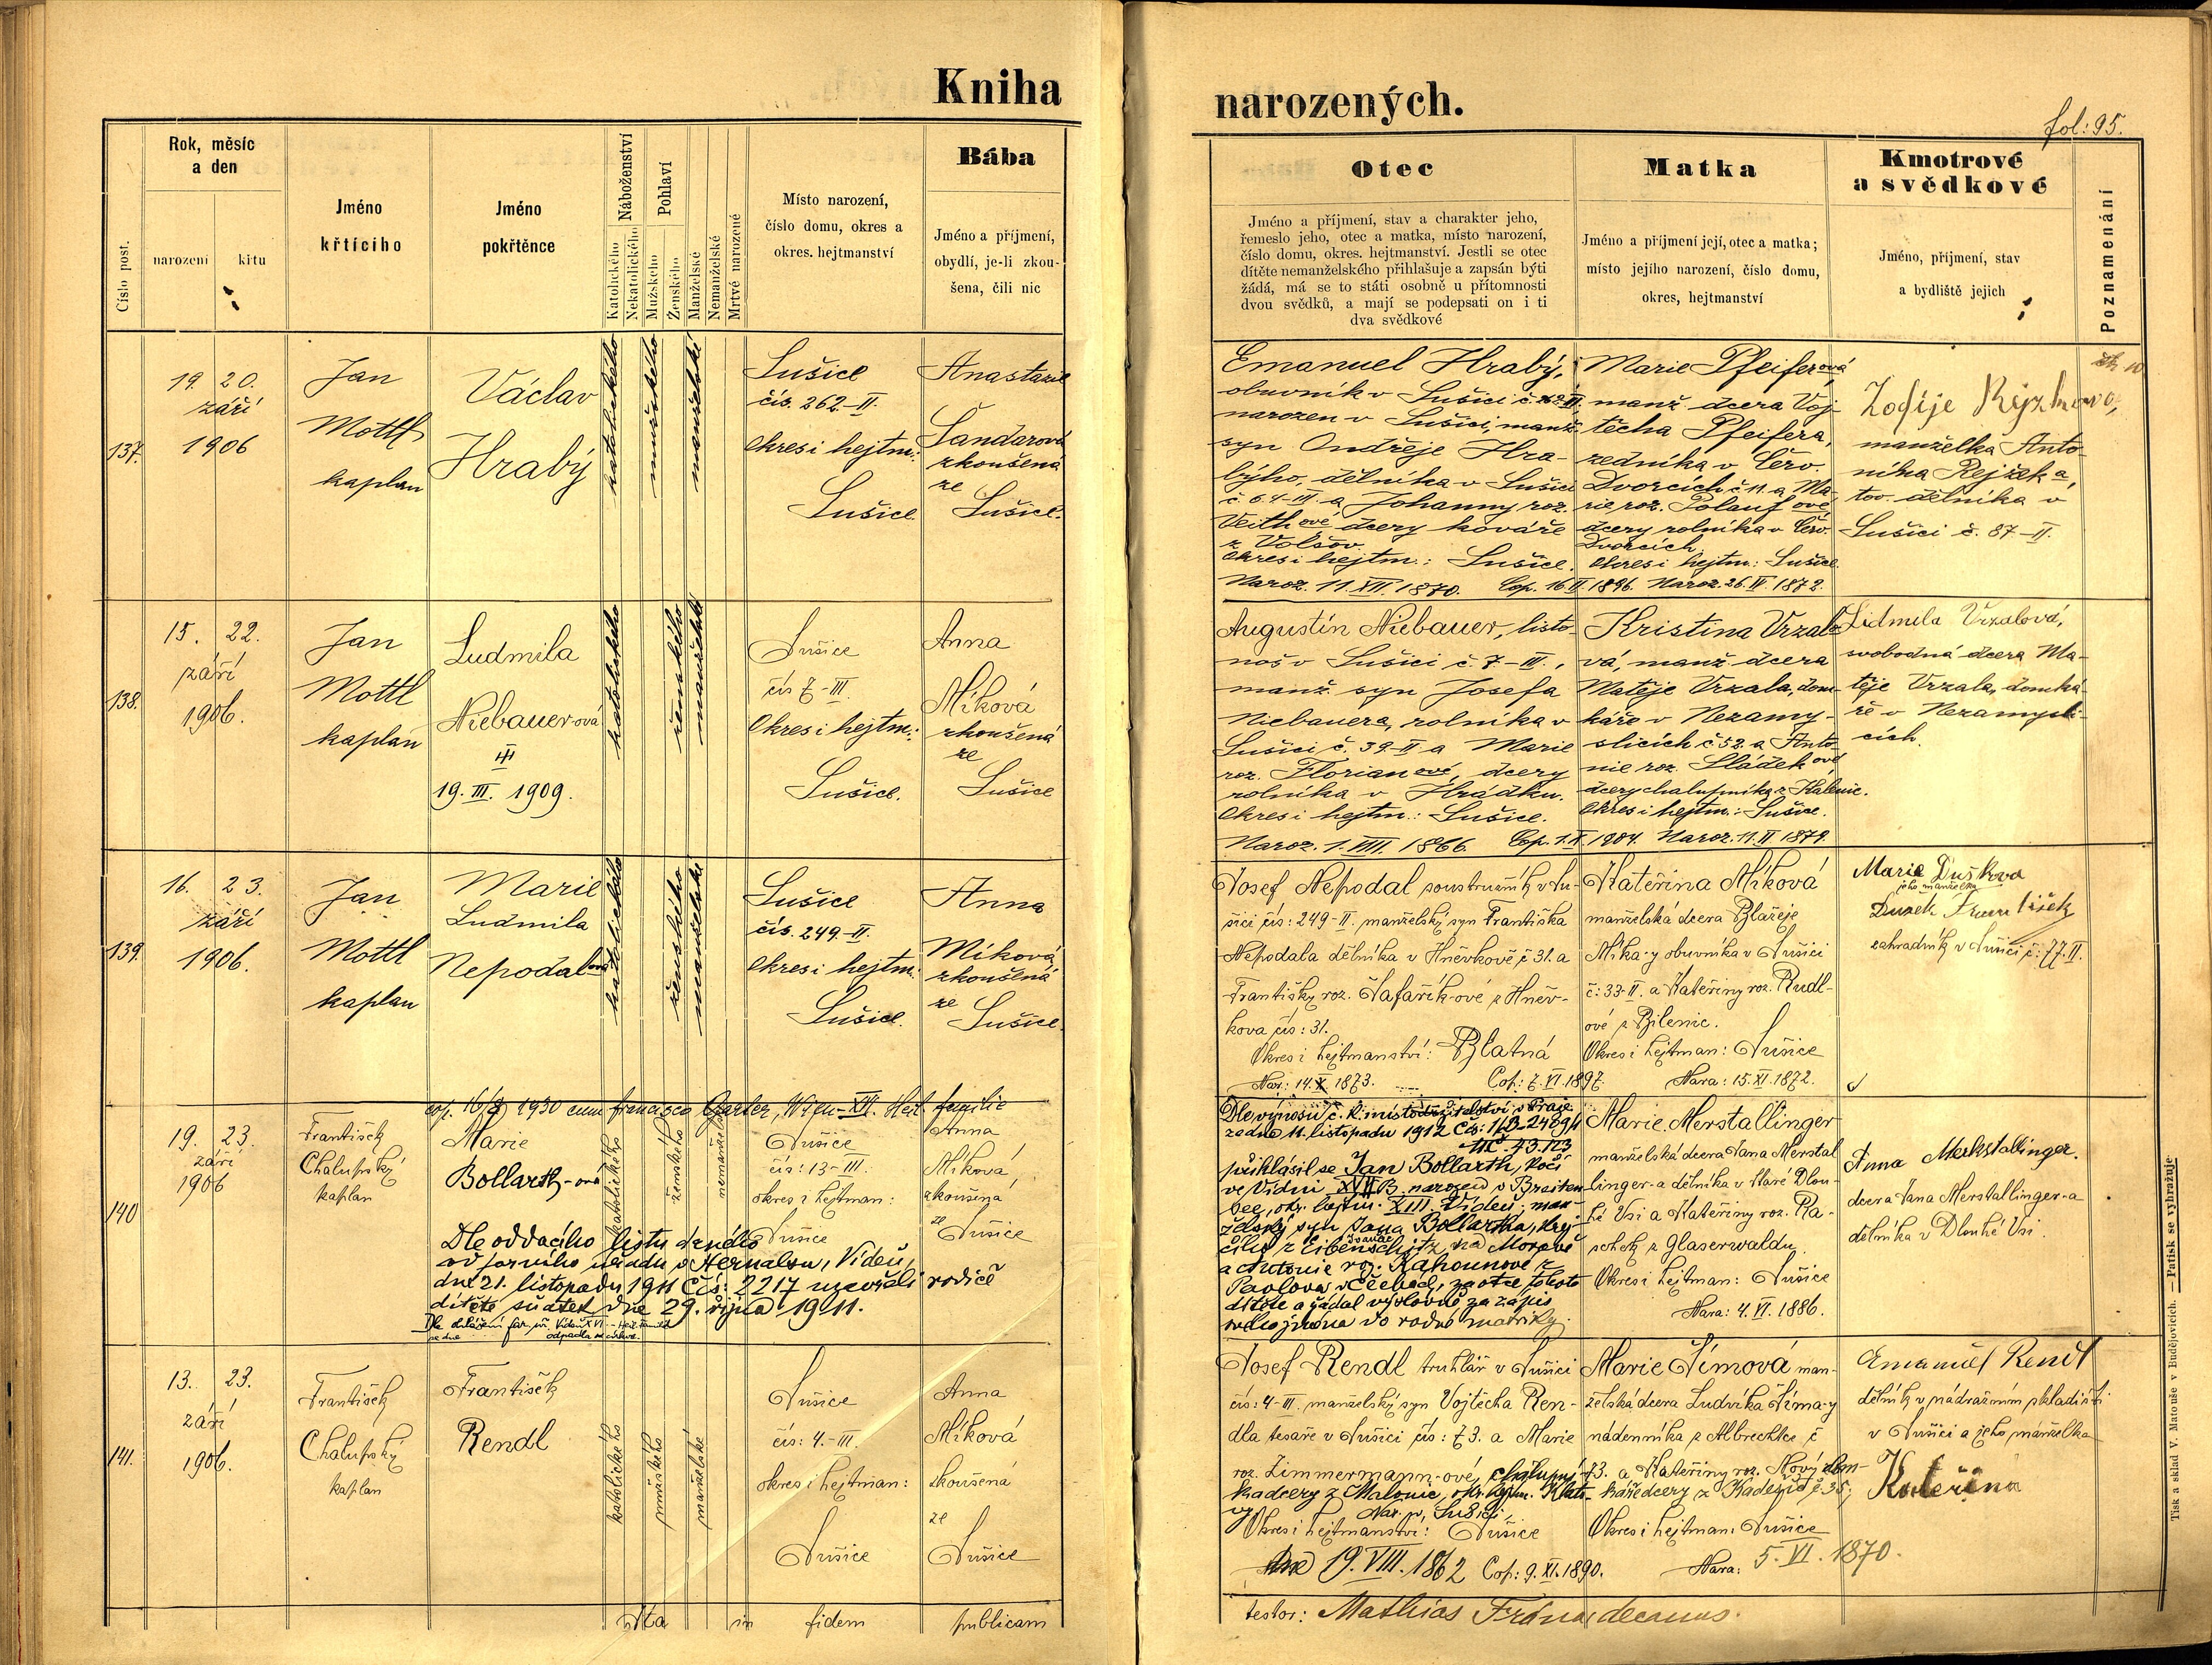 Kniha
narozených.
fol: 95.
Číslo post.
Rok, měsíc
a den
narození
křtu
Jméno
křtícího
Jméno
pokřtěnce
Náboženství
Katolického
Nekatolického
Pohlaví
Mužského
Ženského
Manželské
Nemanželské
Mrtvě narozené
Místo narození,
číslo domu, okres a
okres. hejtmanství
Bába
Jméno a příjmení,
obydlí, je-li zkou-
šena, čili nic
Otec
Jméno a příjmení, stav a charakter jeho,
řemeslo jeho, otec a matka, místo narození,
číslo domu, okres. hejtmanství. Jestli se otec
dítěte nemanželského přihlašuje a zapsán býti
žádá, má se to státi osobně u přítomnosti
dvou svědků, a mají se podepsati on i ti
dva svědkové
Matka
Jméno a příjmení její, otec a matka;
místo jejího narození, číslo domu,
okres, hejtmanství
Kmotrové
a svědkové
Jméno, příjmení, stav
a bydliště jejich
Poznamenání
137.
19. 20.
září
1906
Jan
Mottl
kaplan
Václav
Hrabý
katolického
mužského
manželské
Sušice
čís. 262-II.
Okres i hejtm.:
Sušice.
Anastazie
Šandarová
zkoušená
ze
Sušice.
Emanuel Hrabý,
obuvník v Sušici č. 262-II,
narozen v Sušici, manž.
syn Ondřeje Hra-
býho, dělníka v Sušici
č. 64-III. a Johanny roz.
Veithové dcery kováře
z Volšov.
Okres i hejtm.: Sušice.
Naroz. 11. XII. 1870. Cop. 16 II 1896.
Marie Pfeiferová
manž. dcera Voj-
těcha Pfeifera,
zedníka v Červ.
Dvorcích č 11. a Ma-
rie roz. Polaufové
dcery rolníka v Červ.
Dvorcích.
Okres i hejtm.: Sušice.
Naroz. 26. IV. 1872.
manželka Anto-
nína Rejžka,
tov. dělníka v
Sušici č. 87-II.
138.
15. 22.
září
1906.
Jan
Mottl
kaplan
Ludmila
Niebauerová
19. III. 1909.
katolického
ženského
manželské
Sušice
čís 7-III.
Okres i hejtm.:
Sušice.
Anna
Míková
zkoušená
ze
Sušice
Augustin Niebauer, listo-
noš v Sušici č. 7-III.,
manž. syn Josefa
Niebauera, rolníka v
Sušici č. 39-II. a Marie
roz. Florianové, dcery
rolníka v Hrádku.
Okres i hejtm.: Sušice.
Naroz. 1. VIII. 1866. Cop. 1. X. 1904.
Kristina Vrzalo-
vá, manž. dcera
Matěje Vrzala, dom-
káře v Nezamy-
slicích č 52. a Anto-
nie roz. Sládkové
dcery chalupníka z Kalenic.
Okres i hejtm.: Sušice.
Naroz. 11. II. 1879.
Lidmila Vrzalová,
svobodná dcera Ma-
těje Vrzala, domká-
ře v Nezamysli-
cích.
139.
16. 23.
září
1906.
Jan
Mottl
kaplan
Marie
Ludmila
Nepodalová
katolického
ženského
manželské
Sušice
čís. 249-II.
Okres i hejtm.:
Sušice.
Anna
Míková
zkoušená
ze
Sušice.
Josef Nepodal soustružník v Su-
šici čís: 249-II. manželský syn Františka
Nepodala dělníka v Hněvkově č 31. a
Františky roz. Šafaříkové z Hněv-
kova čís: 31.
Okres i hejtmanství: Blatná
Nar: 14. X 1873. Cop: 7. VI. 1897.
Kateřina Míková
manželská dcera Blažeje
Míka-y obuvníka v Sušici
č: 33-II. a Kateřiny roz. Rudl-
ové z Bílenic.
Okres i hejtman: Sušice
Nara: 15. XI. 1872.
Marie Dušková
jeho manželka
Dušek František
zahradník v Sušici č: 77. II.
140
cop. 16/8 1930 cum Francisco Garler, Wien-XVI. Heil. Familie
19. 23.
září
1906
František
Chalupský
kaplan
Marie
Bollarth-ová
katolického
ženského
nemanželské
Sušice
čís: 13-III.
okres i hejtman:
Sušice
Anna
Míková
zkoušená
ze
Sušice
Dle oddacího listu daného
od farního úřadu v Hernalsu, Vídeň,
dne 21. listopadu 1911 čís: 2217 uzavřeli rodiče
dítěte sňatek dne 29. října 1911.
Dle výnosu c. k. místodržitelství v Praze
ze dne 11. listopadu 1912
přihlásil se Jan Bollarth, kočí
ve Vídni XVII B. narozen v Breiten-
see, okr. hejtm. XIII. Vídeň, man-
želský syn Jana Bollartha, krej-
čího z Eibenschitz na Moravě
a Antonie roz. Kahounové z
Pavlova za otce tohoto
dítěte a žádal výslovně za zápis
svého jména do rodné matriky.
Marie Merstallinger
manželská dcera Jana Merstal
linger-a dělníka v Staré Dlou-
hé Vsi a Kateřiny roz. Ra-
schek z Glaserwaldu.
Okres i hejtman: Sušice
Nara: 4. VI. 1886.
Anna Merkstallinger.
dcera Jana Merstallinger-a
dělníka v Dlouhé Vsi.
141.
13. 23.
září
1906.
František
Chalupský
kaplan
František
Rendl
katolického
mužského
manželské
Sušice
čís: 4.-III.
okres i hejtman:
Sušice
Anna
Míková
zkoušená
ze
Sušice
Josef Rendl truhlář v Sušici
čís: 4-III. manželský syn Vojtěcha Ren-
dla tesaře v Sušici čís: 73. a Marie
roz. Zimmermann-ové, chalupní-
ka dcery z Malonic, okr. hejtm. Klato-
vy. Nar. v Sušici,
Okres i hejtmanství: Sušice
19. VIII. 1862 Cop: 9. XI. 1890.
Marie Šímová man-
želská dcera Ludvíka Šíma-y
nádenníka z Albrechtic č
73. a Kateřiny roz. Nový dom-
káře dcery z Kadešic č 35;
Okres i hejtman: Sušice
Nara: 5. VI. 1870.
Emanuel Rendl
dělník v nádražním skladišti
v Sušici a jeho manželka
Kateřina
ita in fidem publicam
testor: Mathias Frána, decanus.
Tisk a sklad V. Matouše v Budějovicích. — Patisk se vyhražuje